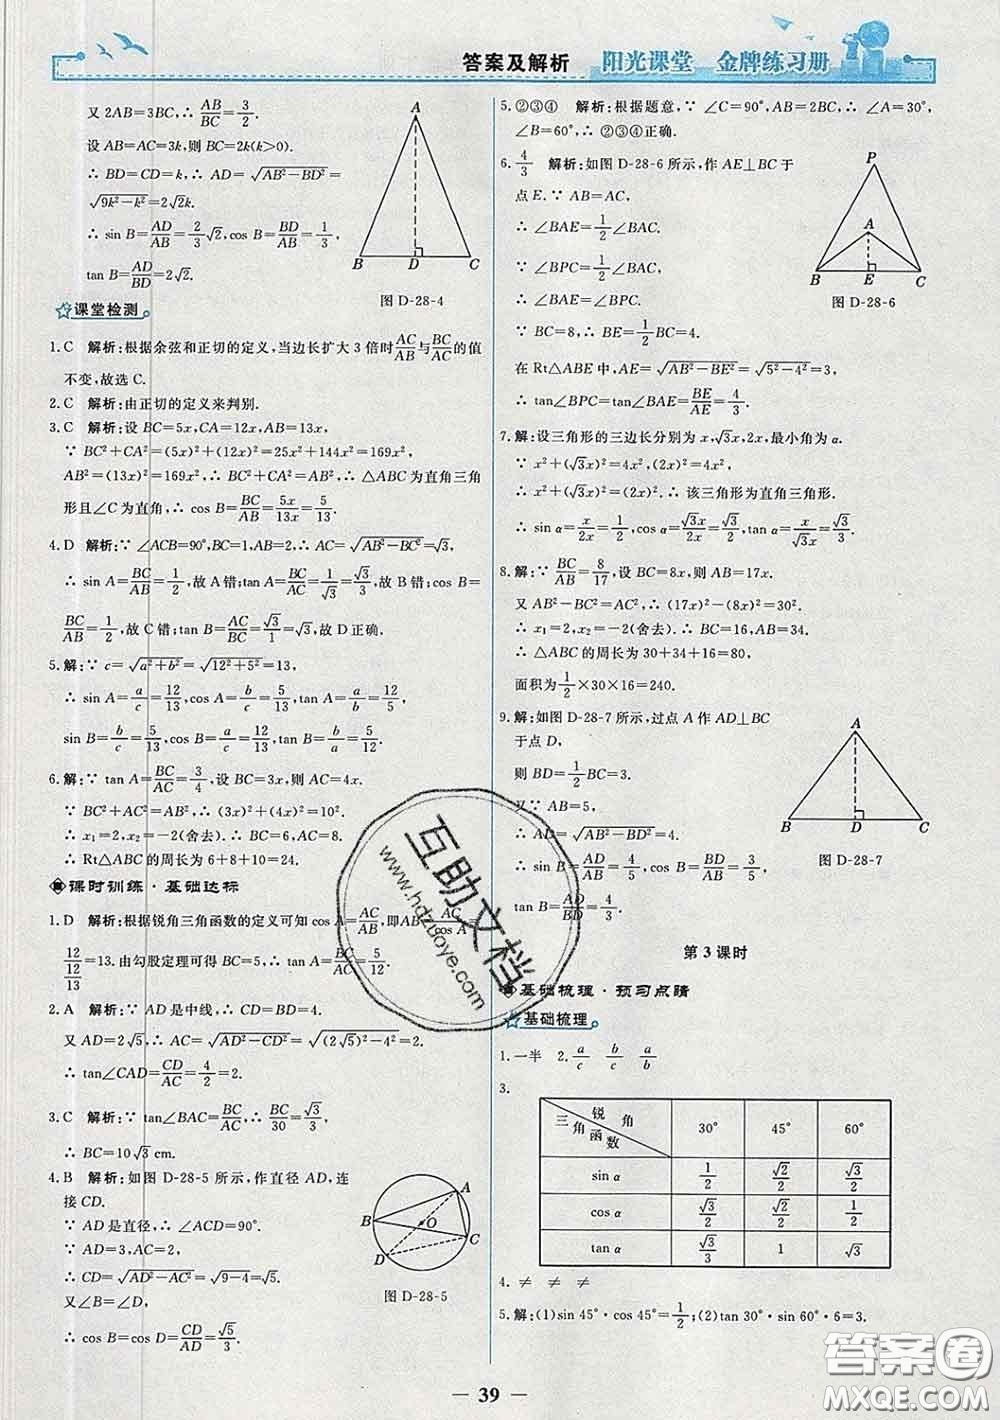 答案及解析 阳光课堂 金牌练习册
又 2AB=3BC,∴ AB/BC=3/2.
设 AB=AC=3k,则 BC=2k(k>0).
∴ BD=CD=k,∴ AD=√(AB²−BD²)=
√(9k²−k²)=2√2k.
∴ sin B=AD/AB=2/3√2,cos B=BD/AB=1/3,
tan B=AD/BD=2√2.
A
B D C
图 D-28-4
课堂检测
1.C 解析:根据余弦和正切的定义,当边长扩大 3 倍时AC/AB与BC/AC的值
不变,故选 C.
2.C 解析:由正切的定义来判别.
3.C 解析:设 BC=5x,CA=12x,AB=13x,
∵ BC²+CA²=(5x)²+(12x)²=25x²+144x²=169x²,
AB²=(13x)²=169x²,∴ BC²+CA²=AB²,∴ △ABC为直角三角
形且∠C为直角,∴ cos B=BC/AB=5x/13x=5/13.
4.D 解析:∵ ∠ACB=90°,BC=1,AB=2,∴ AC=√(AB²−BC²)=√3,
∴ sin A=BC/AB=1/2,故 A 错;tan A=BC/AC=1/√3=√3/3,故 B 错;cos B=
BC/AB=1/2,故 C 错;tan B=AC/BC=√3/1=√3,故 D 正确.
5.解:∵ c=√(a²+b²)=√(12²+5²)=13,
∴ sin A=a/c=12/13,cos A=b/c=5/13,tan A=a/b=12/5,
sin B=b/c=5/13,cos B=a/c=12/13,tan B=b/a=5/12.
6.解:∵ tan A=BC/AC=3/4,设 BC=3x,则 AC=4x.
∵ BC²+AC²=AB²,∴ (3x)²+(4x)²=10².
∴ x₁=2,x₂=−2(舍去).∴ BC=6,AC=8.
∴ Rt△ABC的周长为 6+8+10=24.
课时训练·基础达标
1.D 解析:根据锐角三角函数的定义可知 cos A=AC/AB,即AB AC/cos A=
12/(12/13)=13.由勾股定理可得 BC=5,∴ tan A=BC/AC=5/12.
2.A 解析:∵ AD 是中线,∴ CD=BD=4.
又 AD=2√5,∴ AC=√(AD²−CD²)=√((2√5)²−4²)=2.
∴ tan∠CAD=CD/AC=4/2=2.
3.C 解析:∵ tan∠BAC=BC/AC,∴ BC/30=√3/3,
∴ BC=10√3 cm.
4.B 解析:如图 D-28-5 所示,作直径 AD,连
接 CD.
∵ AD是直径,∴ ∠ACD=90°.
∵ AD=3,AC=2,
∴ CD=√(AD²−AC²)=√(9−4)=√5.
又∠B=∠D,
∴ cos B=cos D=CD/AD=√5/3.
A
B O
C
D
图 D-28-5
5.②③④ 解析:根据题意,∵ ∠C=90°,AB=2BC,∴ ∠A=30°,
∠B=60°,∴ ②③④正确.
6.4/3 解析:如图 D-28-6 所示,作 AE⊥BC 于
点 E.∵ AB=AC,
∴ ∠BAE=1/2∠BAC.
∵ ∠BPC=1/2∠BAC,
∴ ∠BPC=∠BAE.
∵ BC=8,∴ BE=1/2BC=4.
在 Rt△ABE 中,AE=√(AB²−BE²)=√(5²−4²)=3,
∴ tan∠BPC=tan∠BAE=BE/AE=4/3.
P
A
B E C
图 D-28-6
7.解:设三角形的三边长分别为 x,√3x,2x,最小角为 α.
∵ x²+(√3x)²=4x²,(2x)²=4x²,
∴ x²+(√3x)²=(2x)².∴ 该三角形为直角三角形.
∴ sin α=x/2x=1/2,cos α=√3x/2x=√3/2,tan α=x/√3x=√3/3.
8.解:∵ BC/AB=8/17,设 BC=8x,则 AB=17x.
又 AB²−BC²=AC²,∴ (17x)²−(8x)²=30².
∴ x₁=2,x₂=−2(舍去).∴ BC=16,AB=34.
∴ △ABC 的周长为 30+34+16=80,
面积为1/2×30×16=240.
9.解:如图 D-28-7 所示,过点 A 作 AD⊥BC
于点 D,
则 BD=1/2BC=3.
又∵ AB=5,
∴ AD=√(AB²−BD²)=4.
∴ sin B=AD/AB=4/5,cos B=BD/AB=3/5,
tan B=AD/BD=4/3.
A
B D C
图 D-28-7
第 3 课时
基础梳理·预习点睛
基础梳理
1.一半 2.a/c b/c a/b
3.
三角函数 锐角 30° 45° 60°
sin α 1/2 √2/2 √3/2
cos α √3/2 √2/2 1/2
tan α √3/3 1 √3
4.≠ ≠ ≠
5.解:(1)sin 45°·cos 45°=1/2;(2)tan 30°·sin 60°·6=3.
39
互助文档
www.hdzuoye.com
答案圈
MXQE.COM